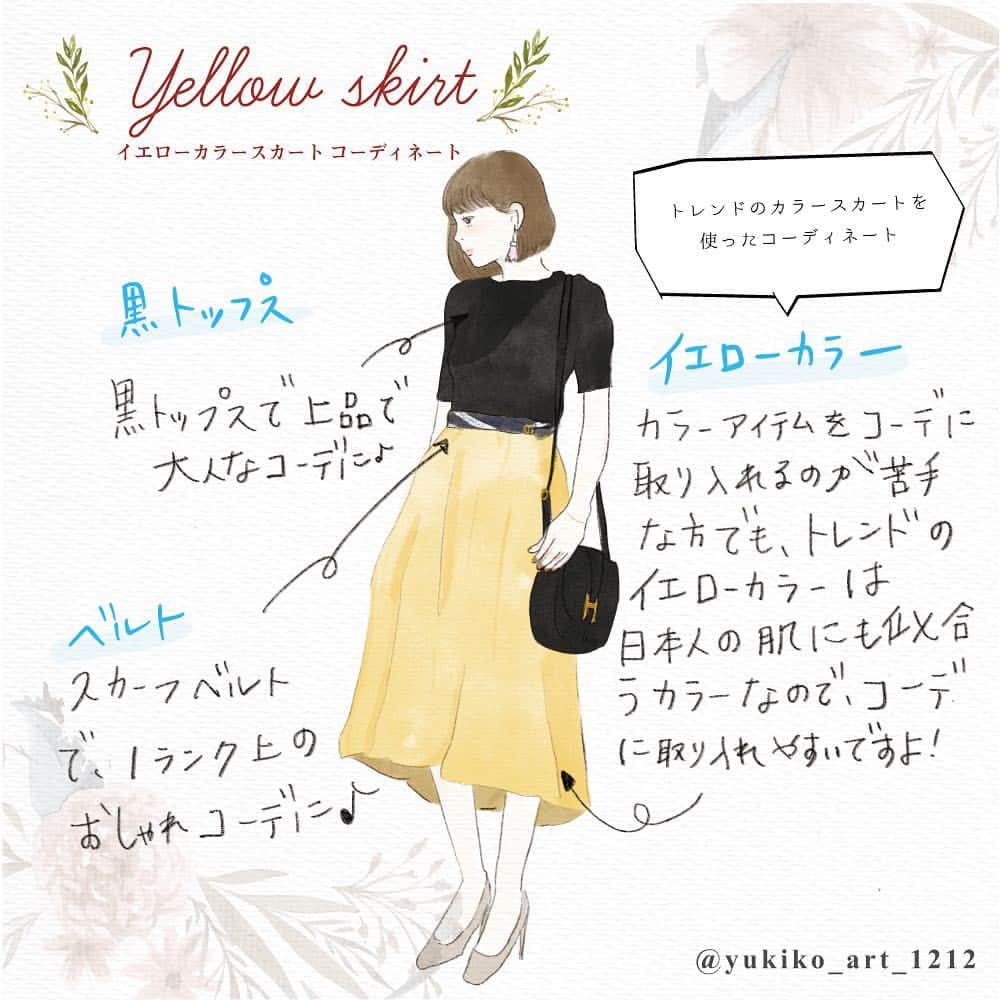 Yellow skirt
イエローカラースカート コーディネート
トレンドのカラースカートを
使ったコーディネート
黒トップス
黒トップスで上品で
大人なコーデに♪
イエローカラー
カラーアイテムをコーデに
取り入れるのが苦手
な方でも、トレンドの
イエローカラーは
日本人の肌にも似合
うカラーなので、コーデ
に取り入れやすいですよ!
ベルト
スカーフベルト
で、1ランク上の
おしゃれコーデに♪
H
@yukiko_art_1212